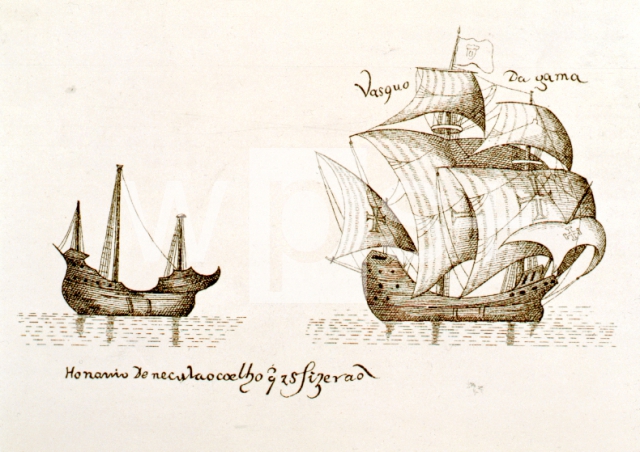 Vasquo Da gama
Ho navio De neculao coelho q̃ se